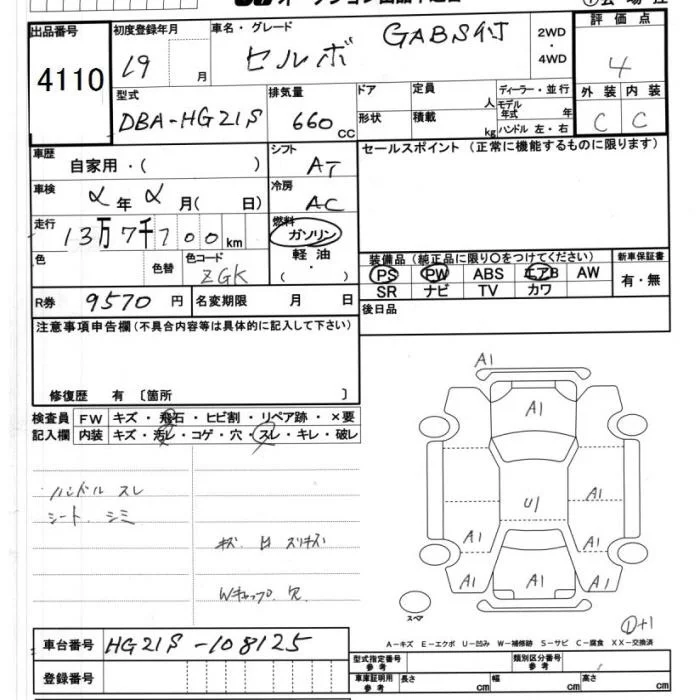 出品番号
4110
初度登録年月
19 月
車名・グレード
セルボ GABS付
2WD
・
4WD
評価点
4
型式
DBA-HG21S
排気量
660 CC
ドア
形状
定員
人
積載
kg
ディーラー・並行
モデル年式 年
ハンドル 左・右
外装 内装
C C
車歴
自家用・( )
シフト
AT
セールスポイント(正常に機能するものに限ります)
車検
年 月( 日)
冷房
AC
走行
13万7千700km
燃料
ガソリン
軽油
・
( )
色
色替
色コード
ZGK
装備品(純正品に限り〇をつけてください)
PS PW ABS エアB AW
SR ナビ TV カワ
新車保証書
有・無
R券 9570 円
名変期限 月 日
後日品
注意事項申告欄(不具合内容等は具体的に記入して下さい)
修復歴 有〔箇所 〕
検査員記入欄
FW キズ・飛石・ヒビ割・リペア跡・×要
内装 キズ・汚レ・コゲ・穴・スレ・キレ・破レ
ハンドル スレ
シート シミ
Wキャップ 欠
A1
A1
A1
U1
A1
A1
A1
A1
A1
A1
スペア
A-キズ E-エクボ U-凹み W-補修跡 S-サビ C-腐食 XX-交換済
車台番号 HG21S-108125
登録番号
型式指定番号
参考
類別区分番号
参考
車庫証明用
参考
長さ cm
幅 cm
高さ cm